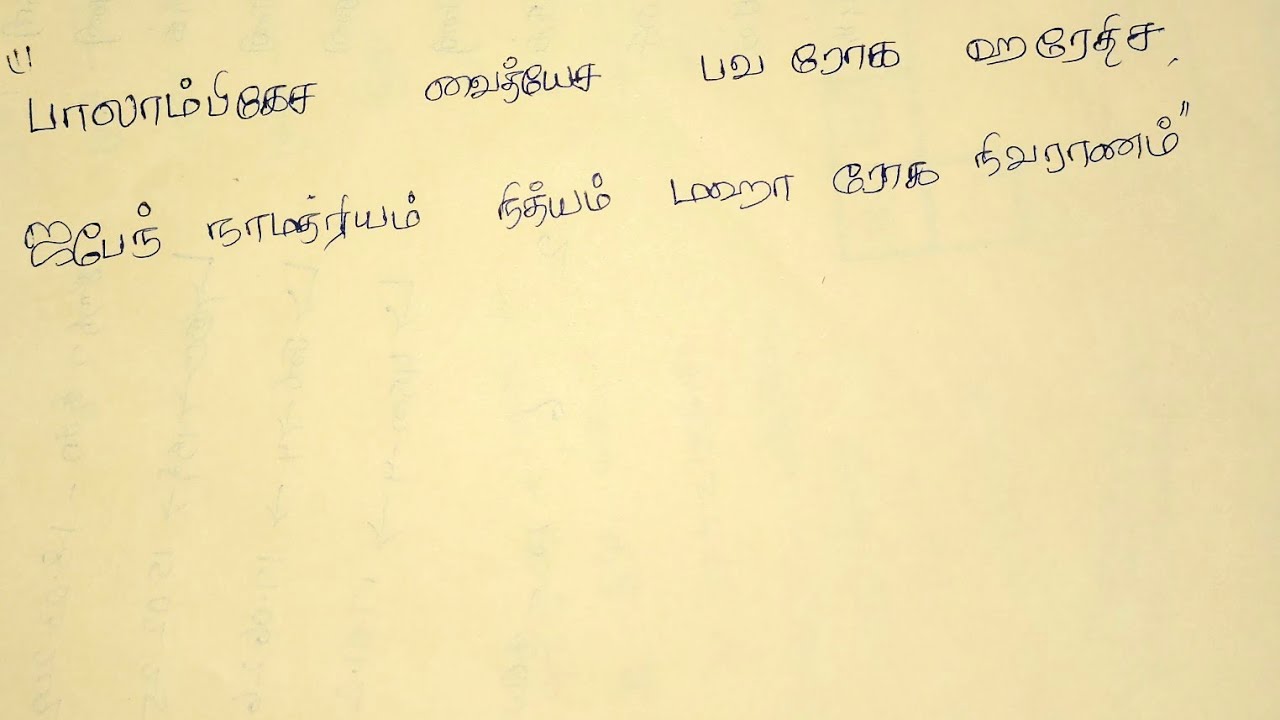 "பாலாம்பிகேச வைத்யேச பவ ரோக ஹரேதிச,
ஜபேந் நாமத்ரியம் நித்யம் மஹா ரோக நிவராணம்"